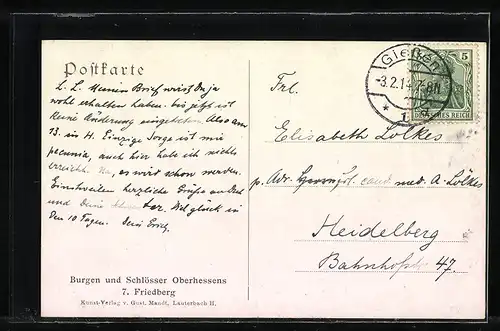 Postkarte
L. L. Meinen Brief wirst Du ja
wohl erhalten haben. bis jetzt ist
keine Änderung eingetreten. Also am
13. in H. Einzige Sorge ist mir
pecunia, auch hier habe ich nichts
erreicht. Na, es wird schon werden.
Einstweilen herzliche Grüße an
und Deine Viel Glück in
den 10 Tagen. Dein
Burgen und Schlösser Oberhessens
7. Friedberg
Kunst-Verlag v. Gust. Mandt, Lauterbach H.
Gießen
3.2.14 7-8N
* 1
5
DEUTSCHES REICH
Frl.
Elisabeth Lölkes
p. Adr. cand med. A. Lölkes
Heidelberg
Bahnhofstr 47.